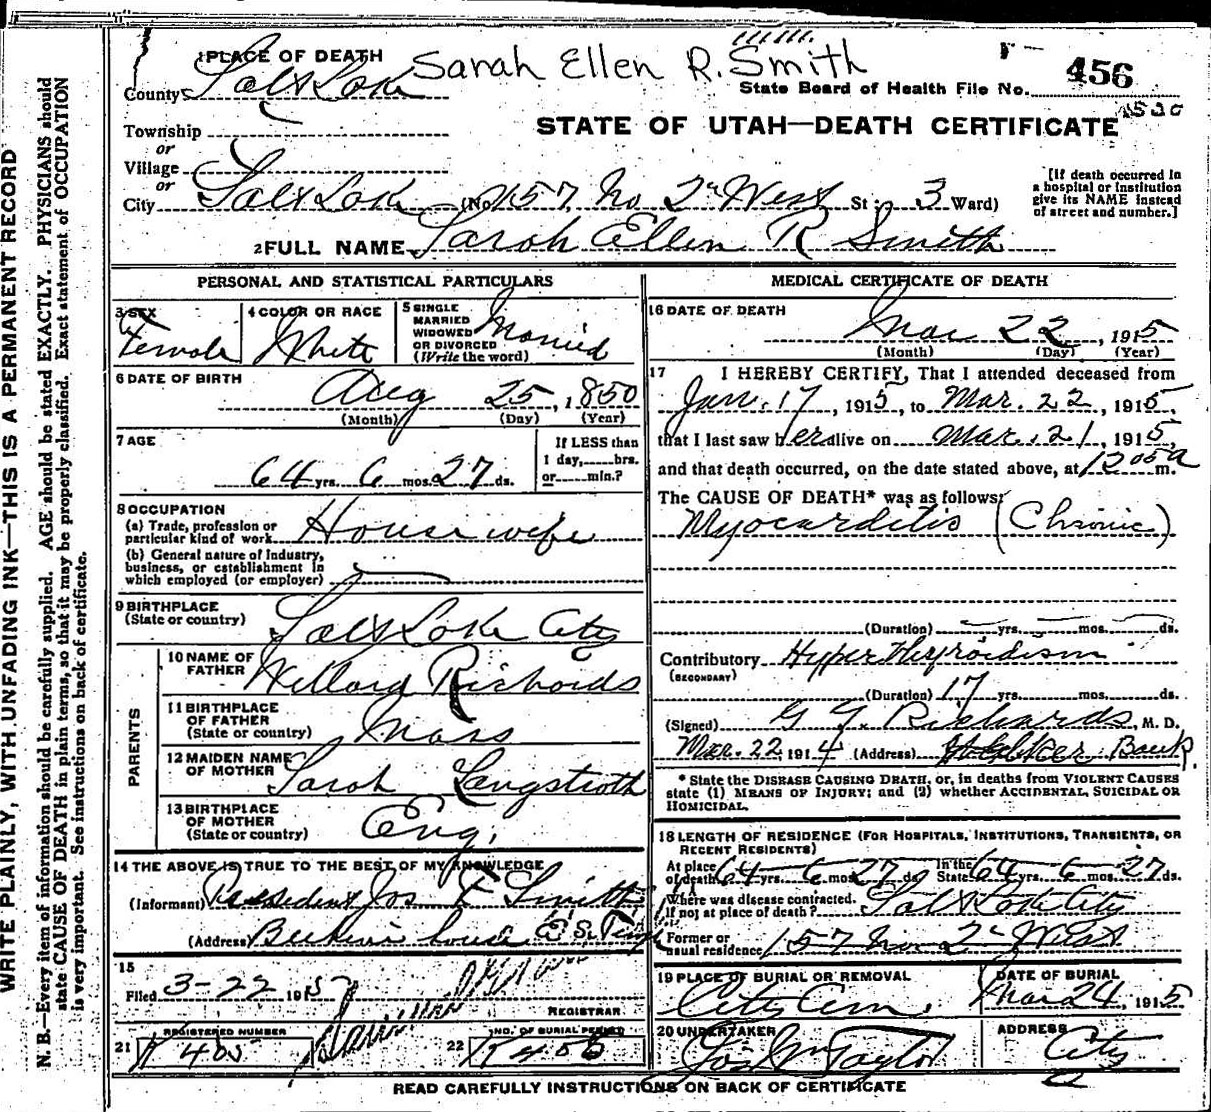 WRITE PLAINLY, WITH UNFADING INK—THIS IS A PERMANENT RECORD
N. B.—Every item of information should be carefully supplied. AGE should be stated EXACTLY. PHYSICIANS should
state CAUSE OF DEATH in plain terms, so that it may be properly classified. Exact statement of OCCUPATION
is very important. See instructions on back of certificate.
1 PLACE OF DEATH Sarah Ellen R. Smith
County Salt Lake State Board of Health File No. 456
Township
or
STATE OF UTAH—DEATH CERTIFICATE
Village
or
City Salt Lake (No. 157 No 2d West St; 3 Ward)
[If death occurred in
a hospital or institution
give its NAME instead
of street and number.]
2 FULL NAME Sarah Ellen R Smith
PERSONAL AND STATISTICAL PARTICULARS
3 SEX
Female
4 COLOR OR RACE
White
5 SINGLE
MARRIED
WIDOWED
OR DIVORCED
(Write the word)
Married
6 DATE OF BIRTH
Aug 25, 1850
(Month) (Day) (Year)
7 AGE
64 yrs. 6 mos. 27 ds.
If LESS than
1 day, hrs.
or min.?
8 OCCUPATION
(a) Trade, profession or
particular kind of work Housewife
(b) General nature of Industry,
business, or establishment in
which employed (or employer)
9 BIRTHPLACE
(State or country) Salt Lake City
PARENTS
10 NAME OF
FATHER Willard Richards
11 BIRTHPLACE
OF FATHER
(State or country) Mass
12 MAIDEN NAME
OF MOTHER Sarah Langstroth
13 BIRTHPLACE
OF MOTHER
(State or country) Eng.
14 THE ABOVE IS TRUE TO THE BEST OF MY KNOWLEDGE
(Informant) President Jos F Smith
(Address) Beehive house E. So. Temp
15
Filed 3-22 1915
REGISTRAR
21 REGISTERED NUMBER
K 405
22 NO. OF BURIAL PERMIT
K 405
MEDICAL CERTIFICATE OF DEATH
16 DATE OF DEATH
Mar 22, 1915
(Month) (Day) (Year)
17 I HEREBY CERTIFY, That I attended deceased from
Jan. 17, 1915, to Mar. 22, 1915,
that I last saw her alive on Mar. 21, 1915,
and that death occurred, on the date stated above, at 12 05 a m.
The CAUSE OF DEATH* was as follows:
Myocarditis (Chronic)
(Duration) yrs. mos. ds.
Contributory Hyperthyroidism
(SECONDARY)
(Duration) 17 yrs. mos. ds.
(Signed) G G Richards, M. D.
Mar. 22, 1914 (Address) Walker Bank.
* State the DISEASE CAUSING DEATH, or, in deaths from VIOLENT CAUSES
state (1) MEANS OF INJURY; and (2) whether ACCIDENTAL, SUICIDAL OR
HOMICIDAL.
18 LENGTH OF RESIDENCE (FOR HOSPITALS, INSTITUTIONS, TRANSIENTS, OR
RECENT RESIDENTS)
At place
of death 64 yrs. 6 mos. 27 ds. In the State 64 yrs. 6 mos. 27 ds.
Where was disease contracted.
If not at place of death? Salt Lake City
Former or
usual residence 157 No 2d West
19 PLACE OF BURIAL OR REMOVAL
City Cem.
DATE OF BURIAL
Mar 24, 1915
20 UNDERTAKER
Jos Wm Taylor
ADDRESS
City
READ CAREFULLY INSTRUCTIONS ON BACK OF CERTIFICATE